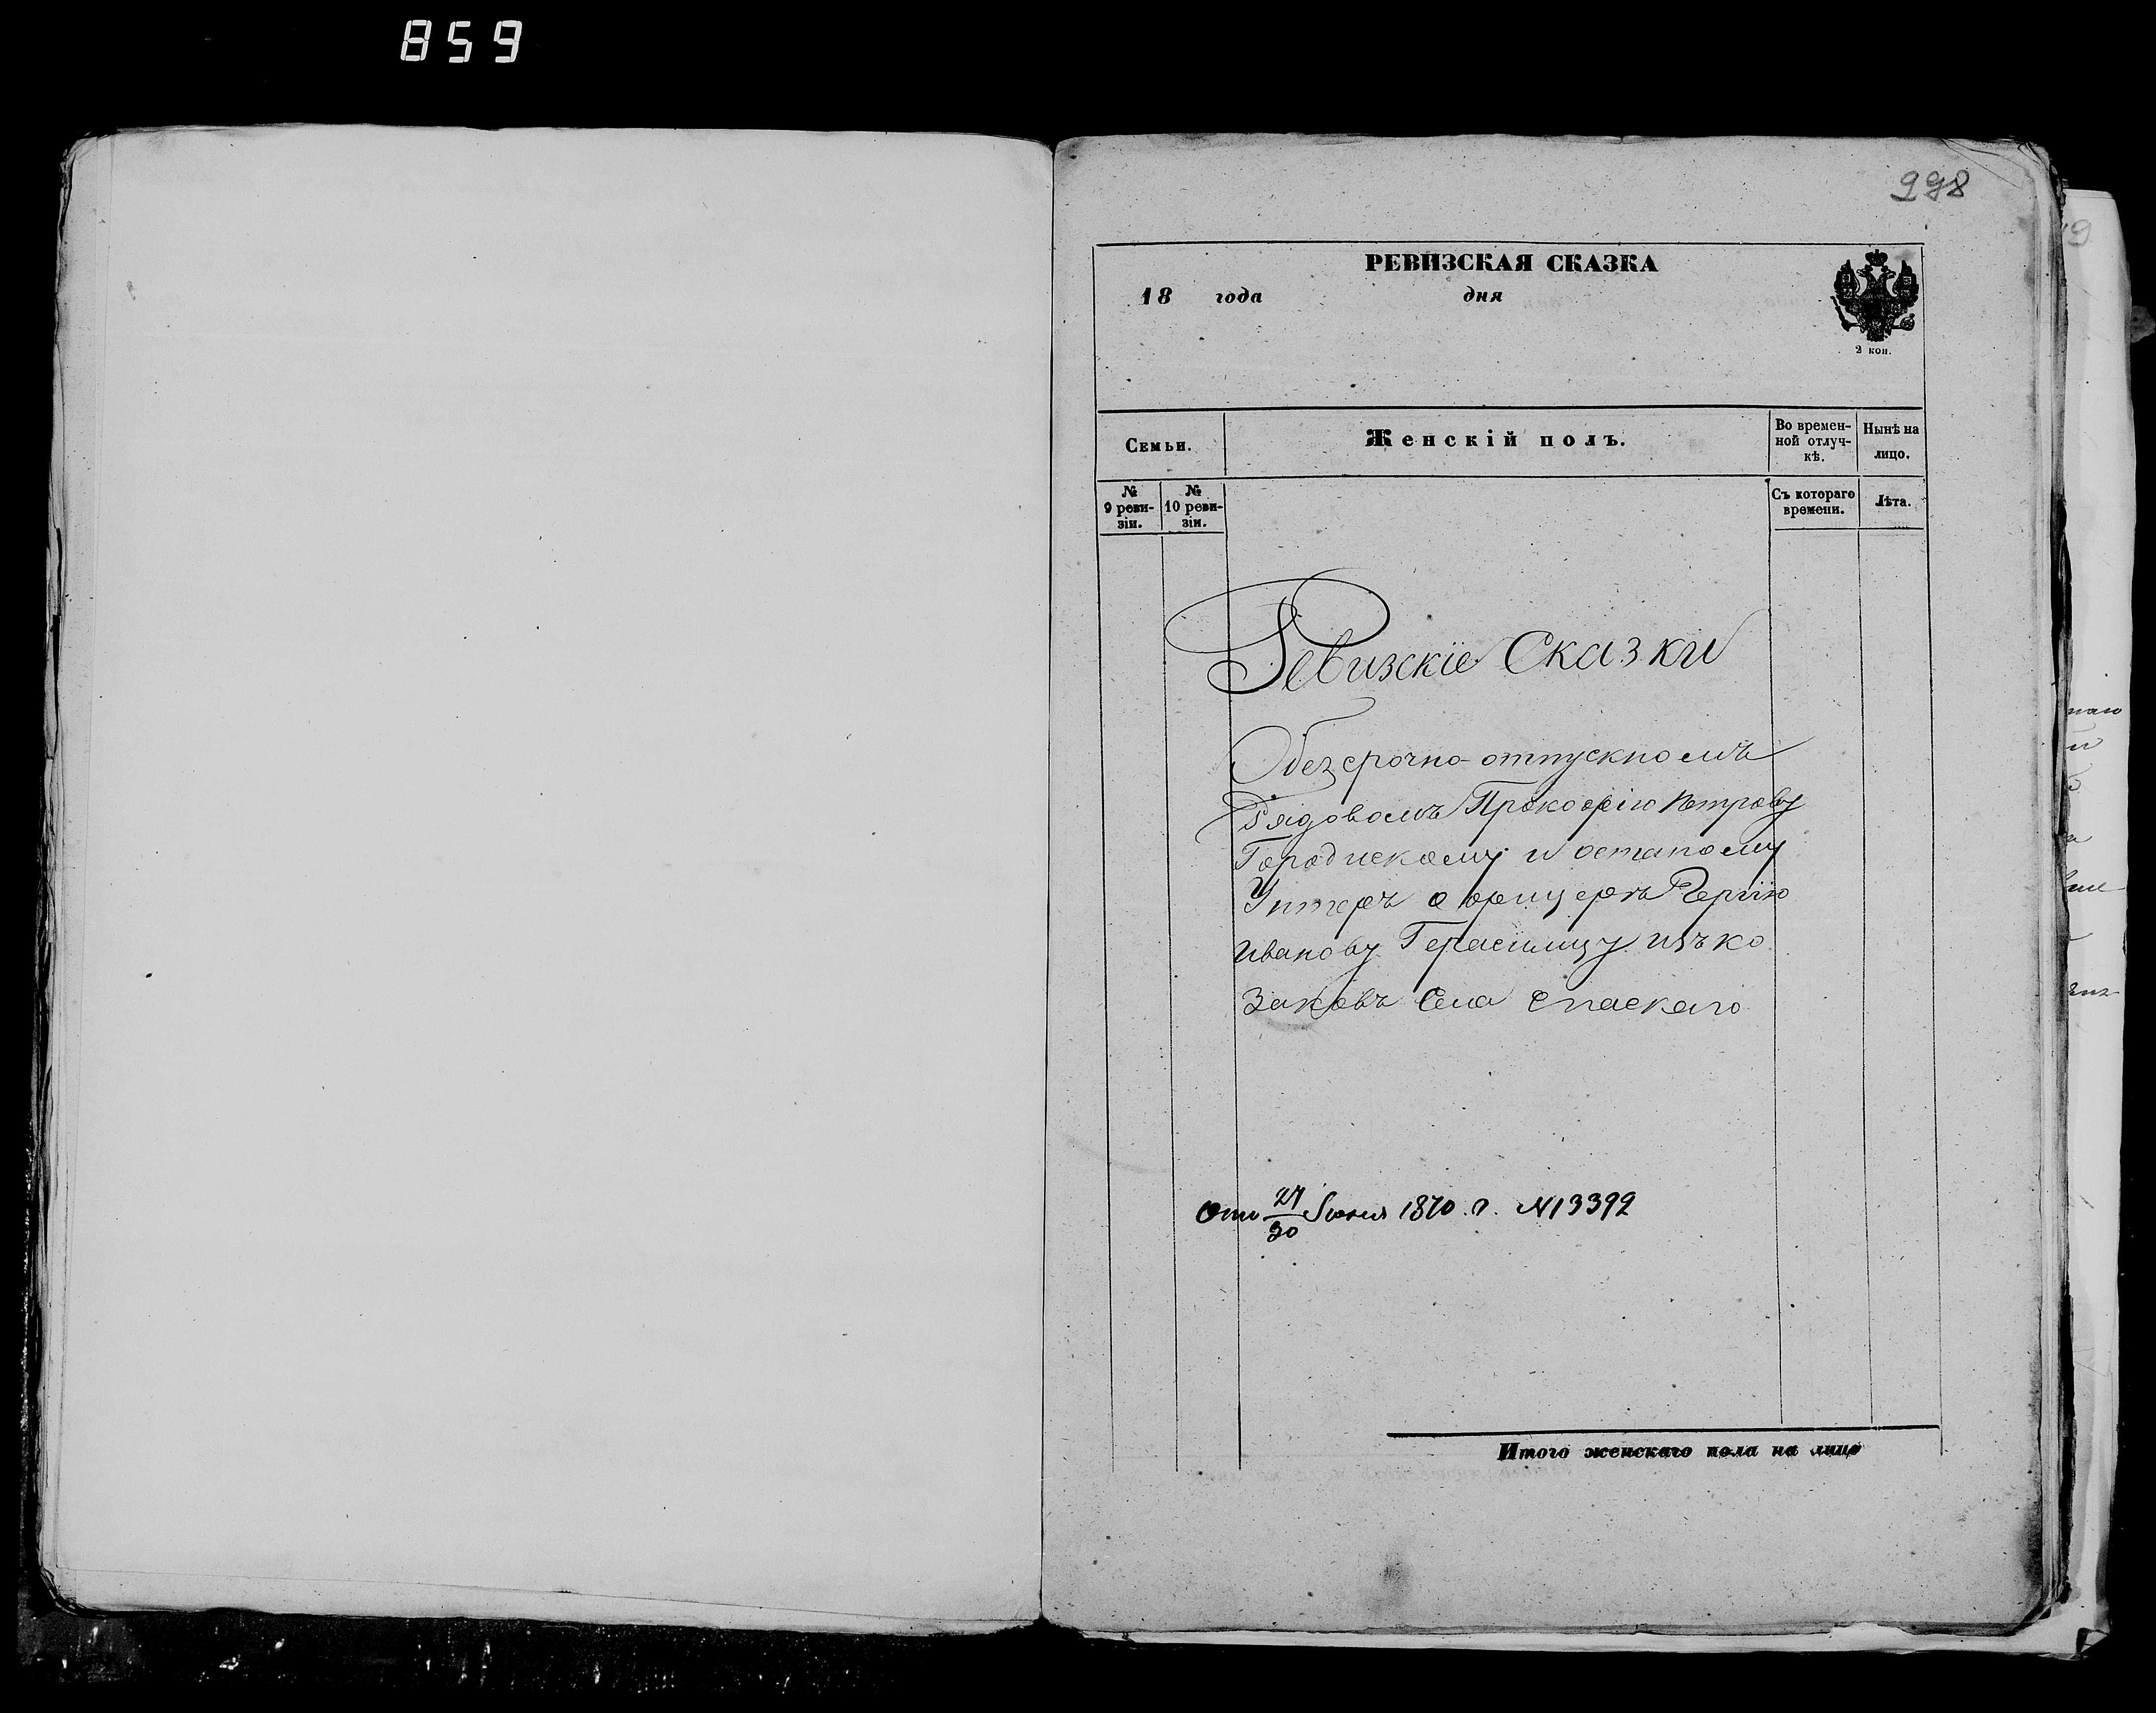 859
298
РЕВИЗСКАЯ СКАЗКА
18 года дня
2 коп.
Семьи.
Женскій полъ.
Во времен-
ной отлуч-
кѣ.
Нынѣ на
лицо.
№
9 реви-
зіи.
№
10 реви-
зіи.
Съ котораго
времени.
Лѣта.
Ревизскіе Сказки
О безсрочно-отпускномъ
Рядовомъ Прокофію Петрову
Городискому и остапому
Унтеръ офицеръ
Иванову изъ ко
заковъ Села Спаскаго
Отъ 27/30 Іюня 1870.г. №13392
Итого женскаго пола на лицо